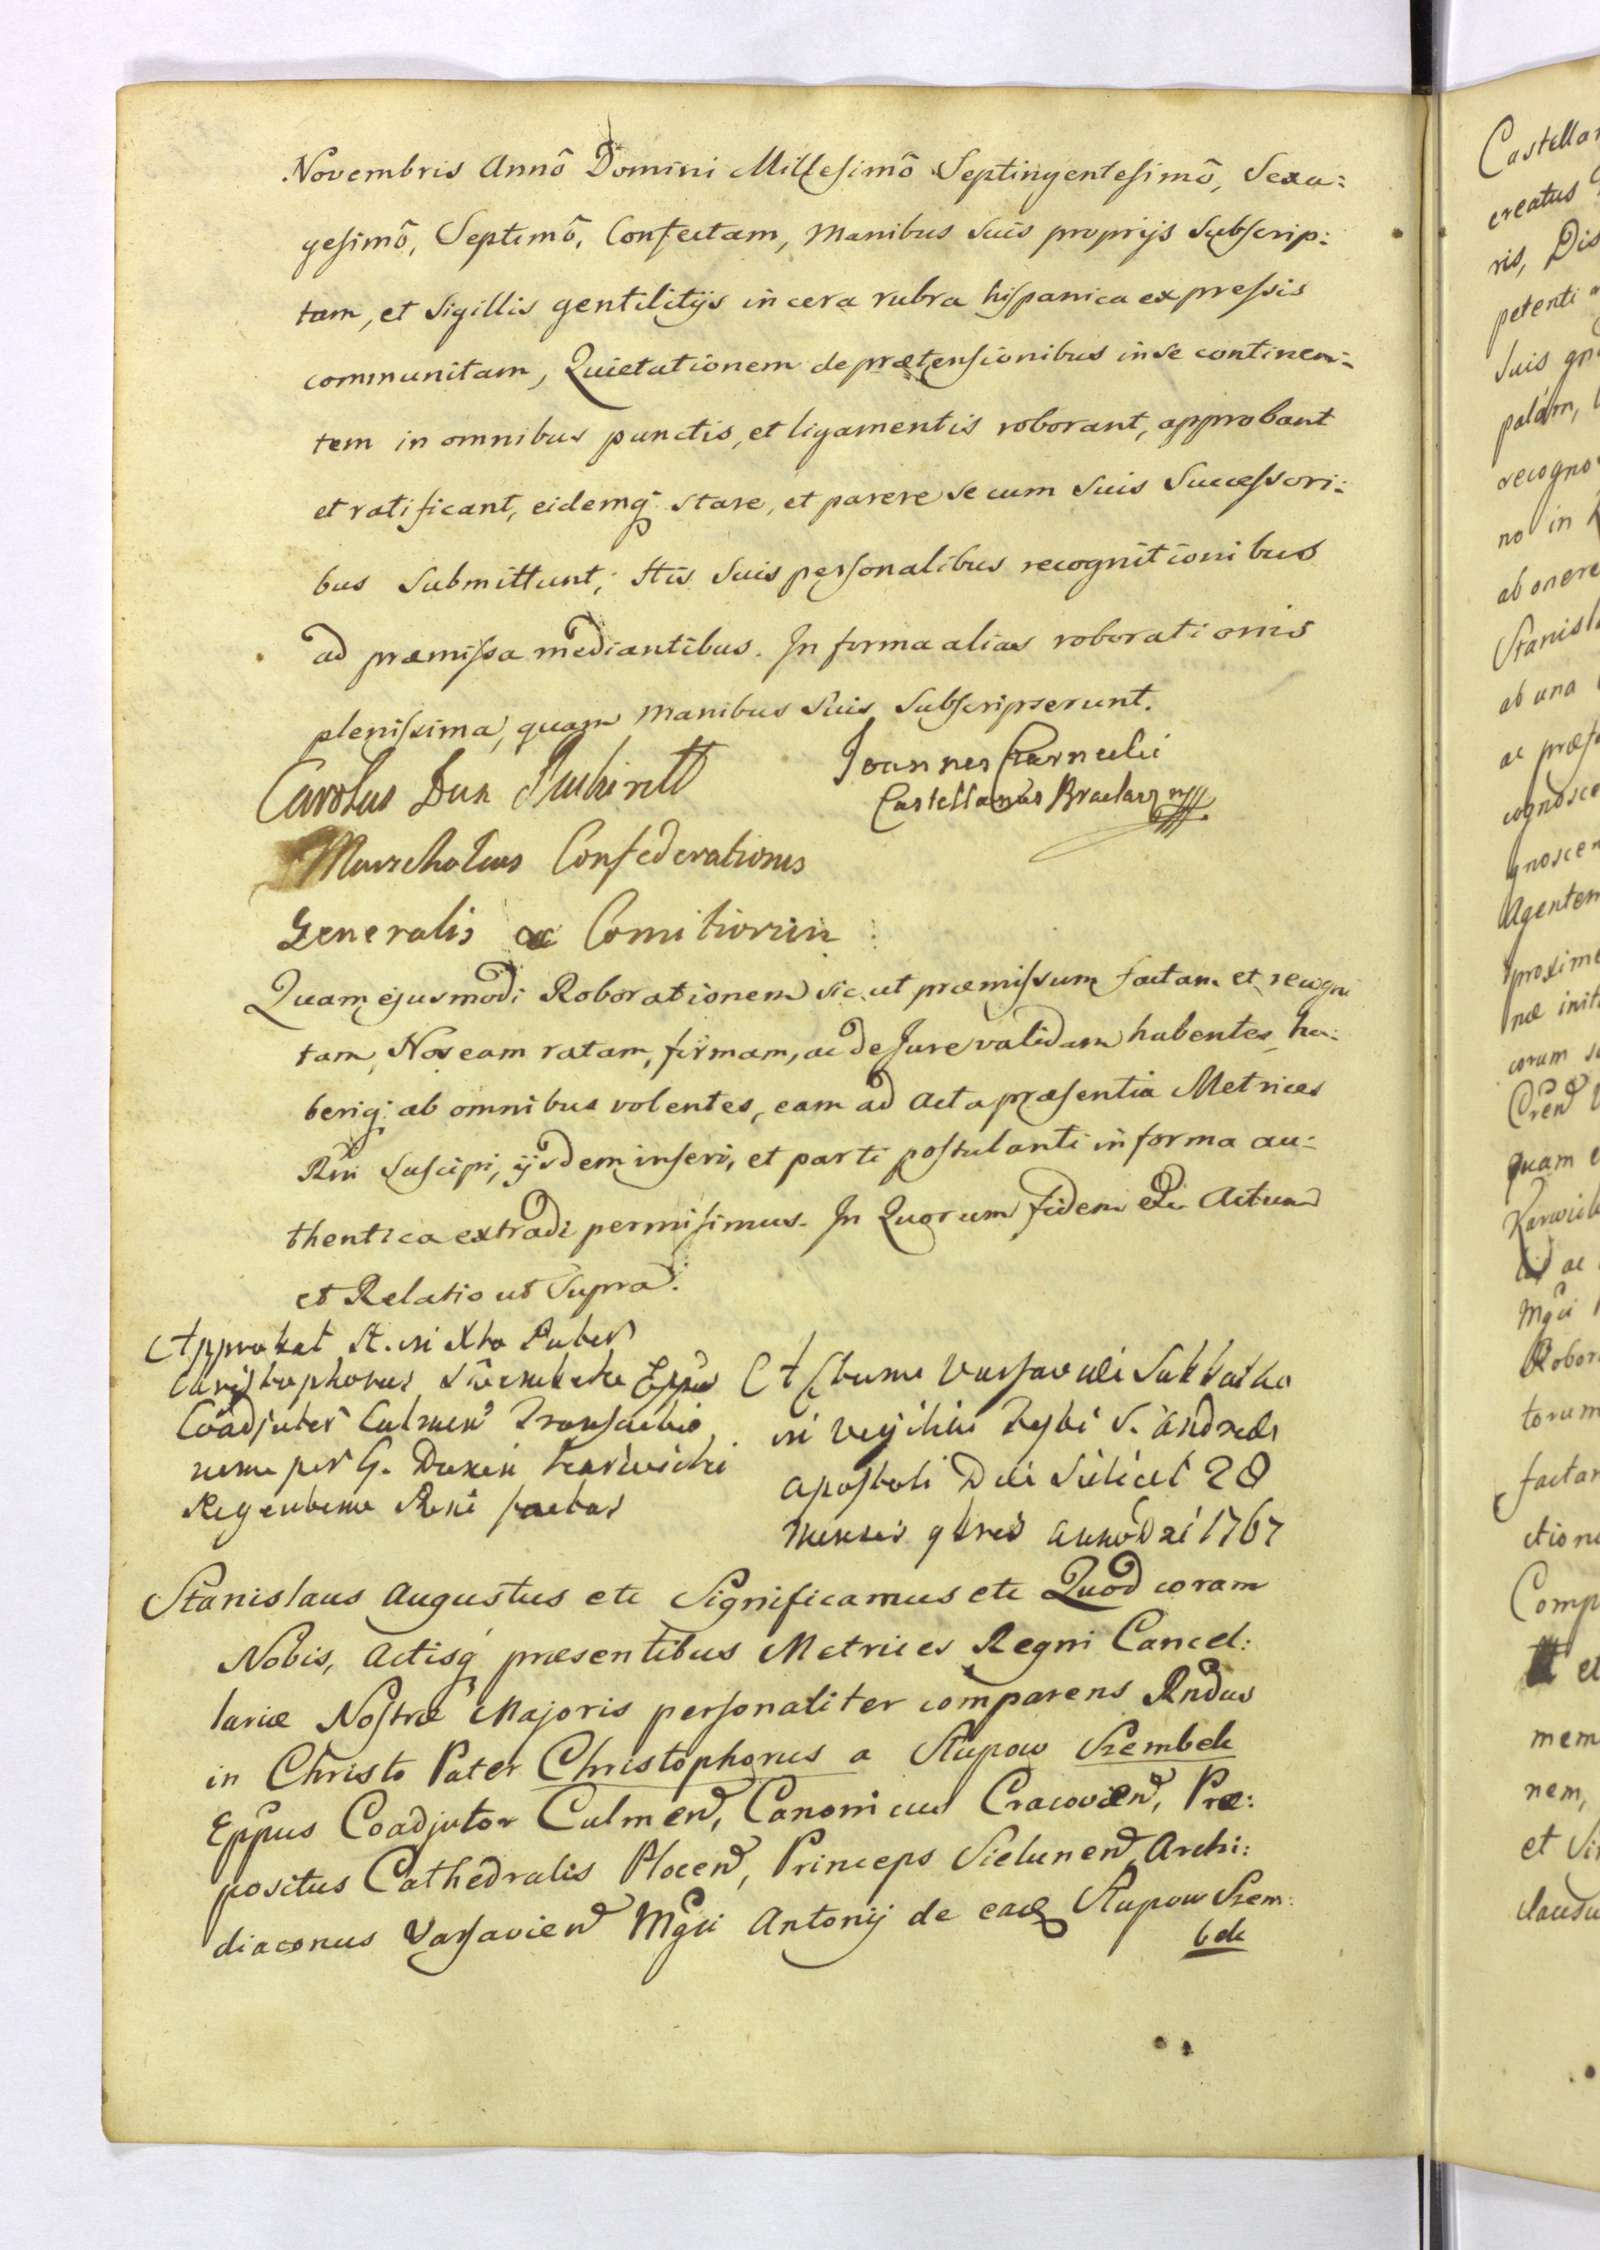 Novembris Annô Domini Millesimô Septingentesimô, Sexa:
gesimô, Septimô, Confectam, Manibus Suis proprijs Subscrip:
tam, et Sigillis gentilitijs in cera rubra hispanica expressis
communitam, Quietationem de prætensionibus in se continen:
tem in omnibus punctis, et ligamentis roborant, approbant
et ratificant, eidemq; stare, et parere se cum suis Successori:
bus Submittunt; Stis Suis personalibus recognitionibus
ad præmissa mediantibus. In forma alias roborationis
plenissima, quam Manibus Suis Subscripserunt.
Carolus Dux
Joannes Czarnecki
Castellanus Braclav
Marschalcus Confederationis
Generalis ac Comitiorum
Quam ejusmodi Roborationem sic ut præmissum factam et recogni
tam, Nos eam ratam, firmam, ac de Jure validam habentes, ha:
beriq; ab omnibus volentes, eam ad Acta præsentia Metrices
Rni Suscipi, ijsdem inseri, et parti postulanti in forma au:
thentica extradi permisimus. In Quorum fidem etc Actum
et Relatio ut Supra.
Approbat R. in Xto Pater
Christophorus Szembek Eppus
Coadjutor Culmen Transactio
nem per G. Dunin Karwicki
Regentem Rni factas
Actum Varsaviæ Sabbatho
in Vigilia Festi S. Andreæ
Apostoli Die Scilicet 28
Mensis 9bris Anno Dni 1767
Stanislaus Augustus etc Significamus etc Quod coram
Nobis, Actisq præsentibus Metrices Regni Cancel:
lariæ Nostræ Majoris personaliter comparens Rndus
in Christo Pater Christophorus a Slupow Szembek
Eppus Coadjutor Culmen, Canonicus Cracovien, Præ:
positus Cathedralis Plocen, Princeps Sielunen, Archi:
diaconus Varsavien Mgci Antonij de eadq Slupow Szem:
bek
Castellan
creatus
ris, Dis
petenti
suis
palàm,
recogno
no in
ab onere
Stanisl
ab una
ac præ
cognosce
gnoscen
Agentem
proxime
næ init
corum
quam
ac
Mgci
Robor
torum
factar
ctione
Comp
et
mem
nem,
et
clausu